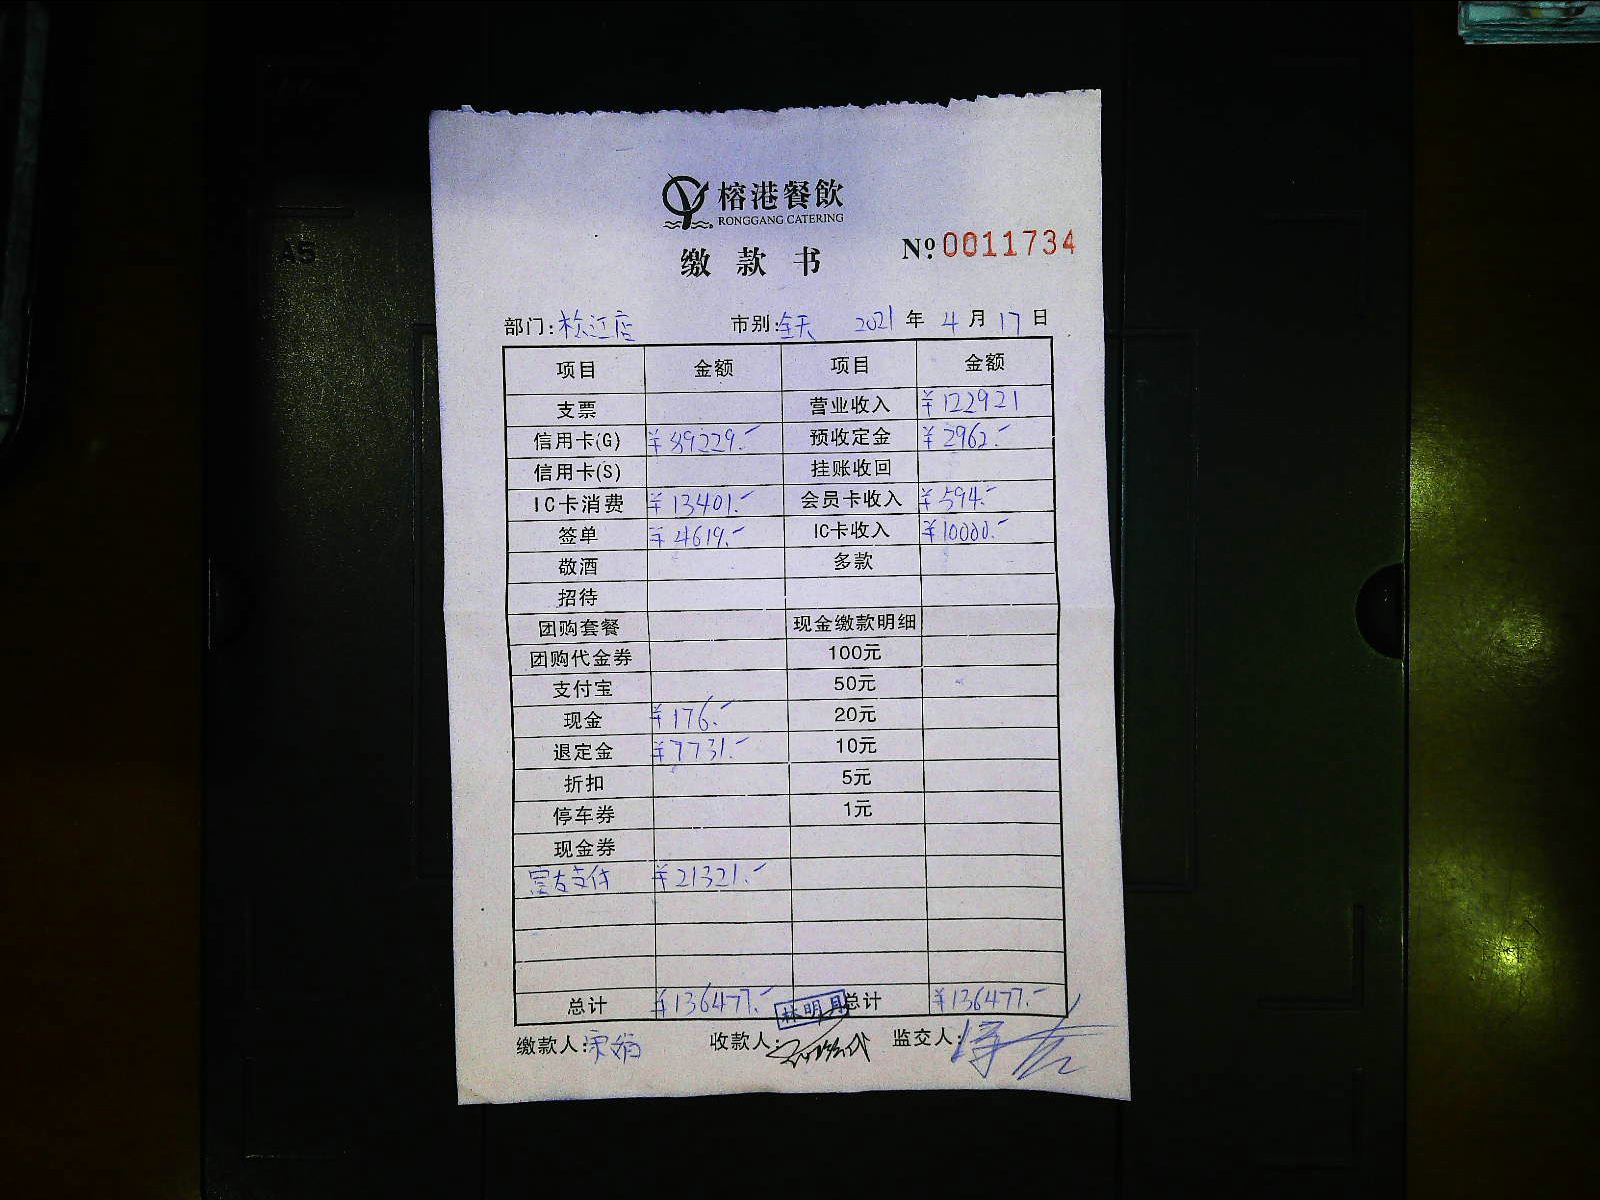 A5
榕港餐飲
RONGGANG CATERING
缴款书
Nº 0011734
部门:松江店 市别:全天 2021年4月17日
项目 金额 项目 金额
支票 营业收入 ¥122921
信用卡(G) ¥89229.- 预收定金 ¥2962.-
信用卡(S) 挂账收回
IC卡消费 ¥13401.- 会员卡收入 ¥594.-
签单 ¥4619.- IC卡收入 ¥10000.-
敬酒 多款
招待
团购套餐 现金缴款明细
团购代金券 100元
支付宝 50元
现金 ¥176.- 20元
退定金 ¥7731.- 10元
折扣 5元
停车券 1元
现金券
富友支付 ¥21321.-
总计 ¥136477.- 总计 ¥136477.-
林明月
缴款人: 收款人: 监交人: